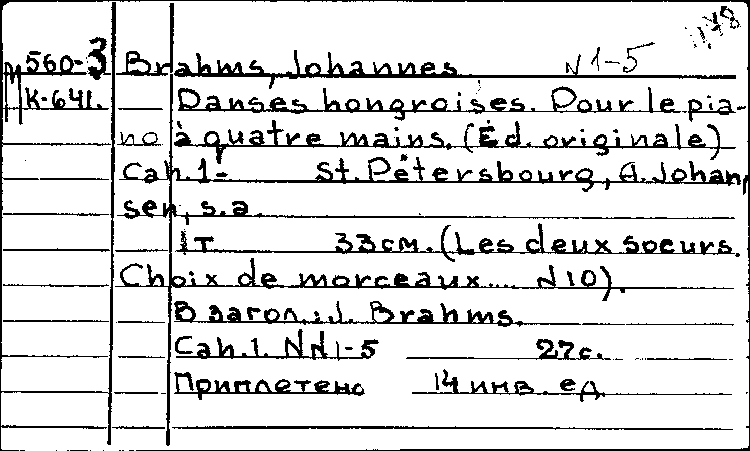 560-3 Brahms, Johannes N 1-5
М К-641. Danses hongroises. Pour le pia-
no à quatre mains. (Éd. originale)
Cah.1- St. Pétersbourg, A. Johan,
sen, s.a.
1т 33см. (Les deux soeurs.
Choix de morceaux.... N10).
В загол.: J. Brahms.
Cah.1. NN1-5 27с.
Приплетено 14 инв. ед.